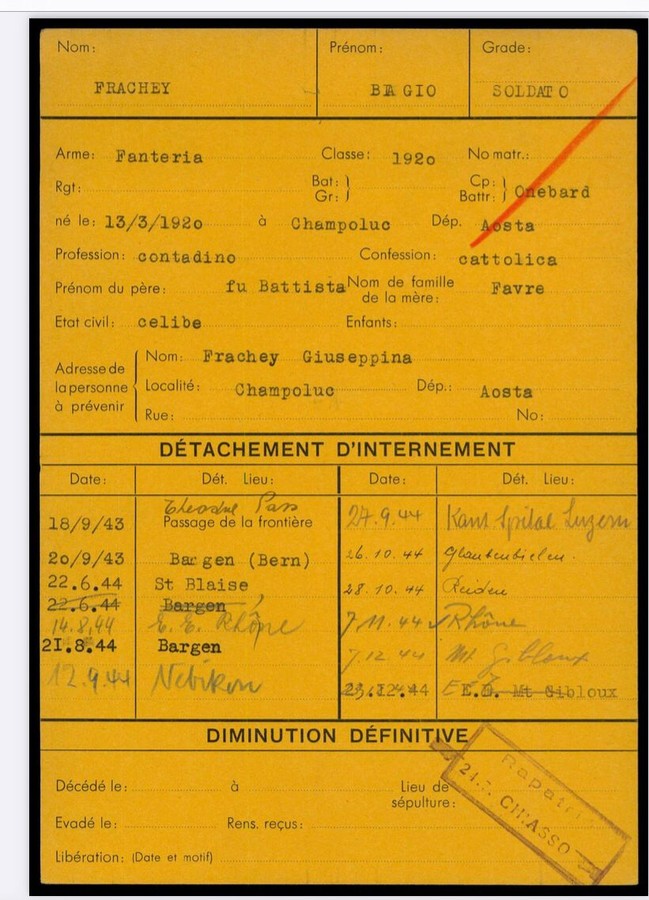 Nom: Prénom: Grade:
FRACHEY BIAGIO SOLDATO
Arme: Fanteria Classe: 1920 No matr.:
Rgt: Bat: Gr: Cp: Battr: Onebard
né le: 13/3/1920 à Champoluc Dép. Aosta
Profession: contadino Confession: cattolica
Prénom du père: fu Battista Nom de famille de la mère: Favre
Etat civil: celibe Enfants:
Adresse de la personne à prévenir
Nom: Frachey Giuseppina
Localité: Champoluc Dép.: Aosta
Rue: No:
DÉTACHEMENT D'INTERNEMENT
Date: Dét. Lieu: Date: Dét. Lieu:
Pass
18/9/43 Passage de la frontière 27.9.44 Kant Spital Luzern
20/9/43 Bargen (Bern) 26.10.44 Glaubenbielen.
22.6.44 St Blaise 28.10.44 Reiden
22.6.44 Bargen
14.8.44 E.E. Rhône 7.11.44 Rhône
21.8.44 Bargen 7.12.44 Mt Gibloux
12.9.44 Nebikon 23.12.44 E.D. Mt Gibloux
DIMINUTION DÉFINITIVE
Décédé le: à Lieu de sépulture:
Evadé le: Rens. reçus:
Libération: (Date et motif)
Rapatrié
CHIASSO